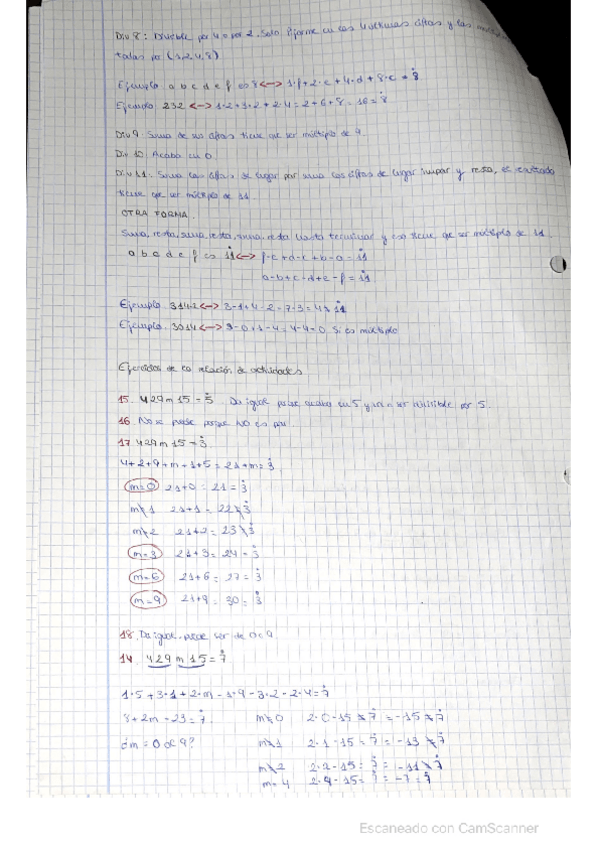 Div 8: Divisible por 4 o por 2. Solo fijarme en las 4 últimas cifras y las
todas por (1,2,4,8)
Ejemplo a b c d e f es 8 <-> 1·f+2·e+4·d+8·c = 8
Ejemplo. 232 <-> 1·2+3·2+2·4=2+6+8=16=8
Div 9: Suma de sus cifras tiene que ser múltiplo de 9.
Div 10: Acaba en 0.
Div 11: Suma las cifras de lugar par suma las cifras de lugar impar y resta, el resultado
tiene que ser múltiplo de 11.
OTRA FORMA.
Suma, resta, suma, resta, suma, resta hasta terminar y eso tiene que ser múltiplo de 11.
a b c d e f es 11 <-> f-e+d-c+b-a=11
a-b+c-d+e-f=11
Ejemplo. 3142 <-> 3-1+4-2=7-3=4≠11
Ejemplo. 3014 <-> 3-0+1-4=4-4=0. Si es múltiplo
Ejercicios de la relación de actividades
15. 429m15=5 Da igual porque acaba en 5 y van a ser divisible por 5.
16. No se puede porque no es par.
17. 429m15=3.
4+2+9+m+1+5=21+m=3
m=0 21+0=21=3
m≠1 21+1=22≠3
m≠2 21+2=23≠3
m=3 21+3=24=3
m=6 21+6=27=3
m=9 21+9=30=3
18. Da igual, puede ser de 0 a 9
14. 429m15=7
1·5+3·1+2·m-1·9-3·2-2·4=7
8+2m-23=7. m≠0 2·0-15≠7=-15≠7
¿m=0 al 9? m≠1 2·1-15=7=-13≠7
m≠2 2·2-15=7=-11≠7
m=4 2·4-15=7=-7=7
Escaneado con CamScanner